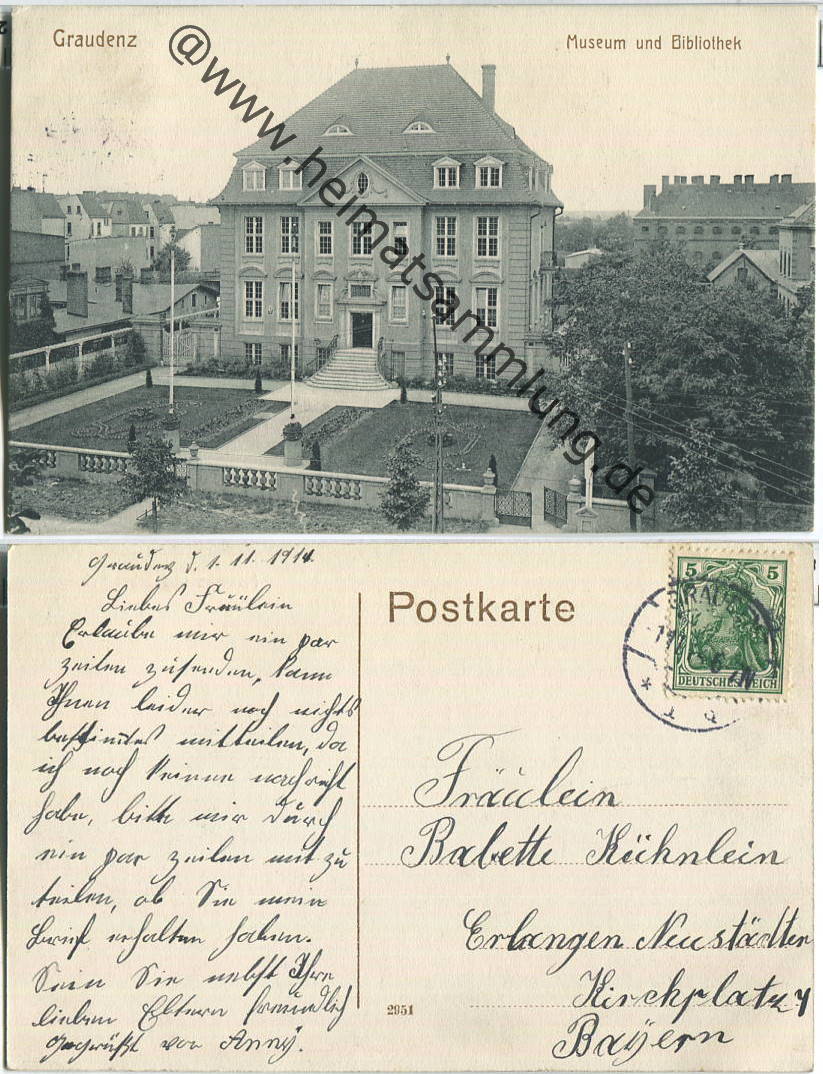 Graudenz
Museum und Bibliothek
@www.heimatsammlung.de
Graudenz d. 1. 11. 1914
Liebes Fräulein
Erlaube mir ein par
zeilen zusenden, kann
Ihnen leider noch nichts
bestimtes mitteilen, da
ich noch keinne nachricht
habe, bitte mir durch
ein par zeilen mit zu
teilen, ob Sie mein
Brief erhalten haben.
Sein Sie nebst Ihre
lieben Eltern freundlich
gegrüßt von Anny.
Postkarte
5 5
DEUTSCHES REICH
Fräulein
Babette Kühnlein
Erlangen Neustädter
Kirchplatz
Bayern
2951